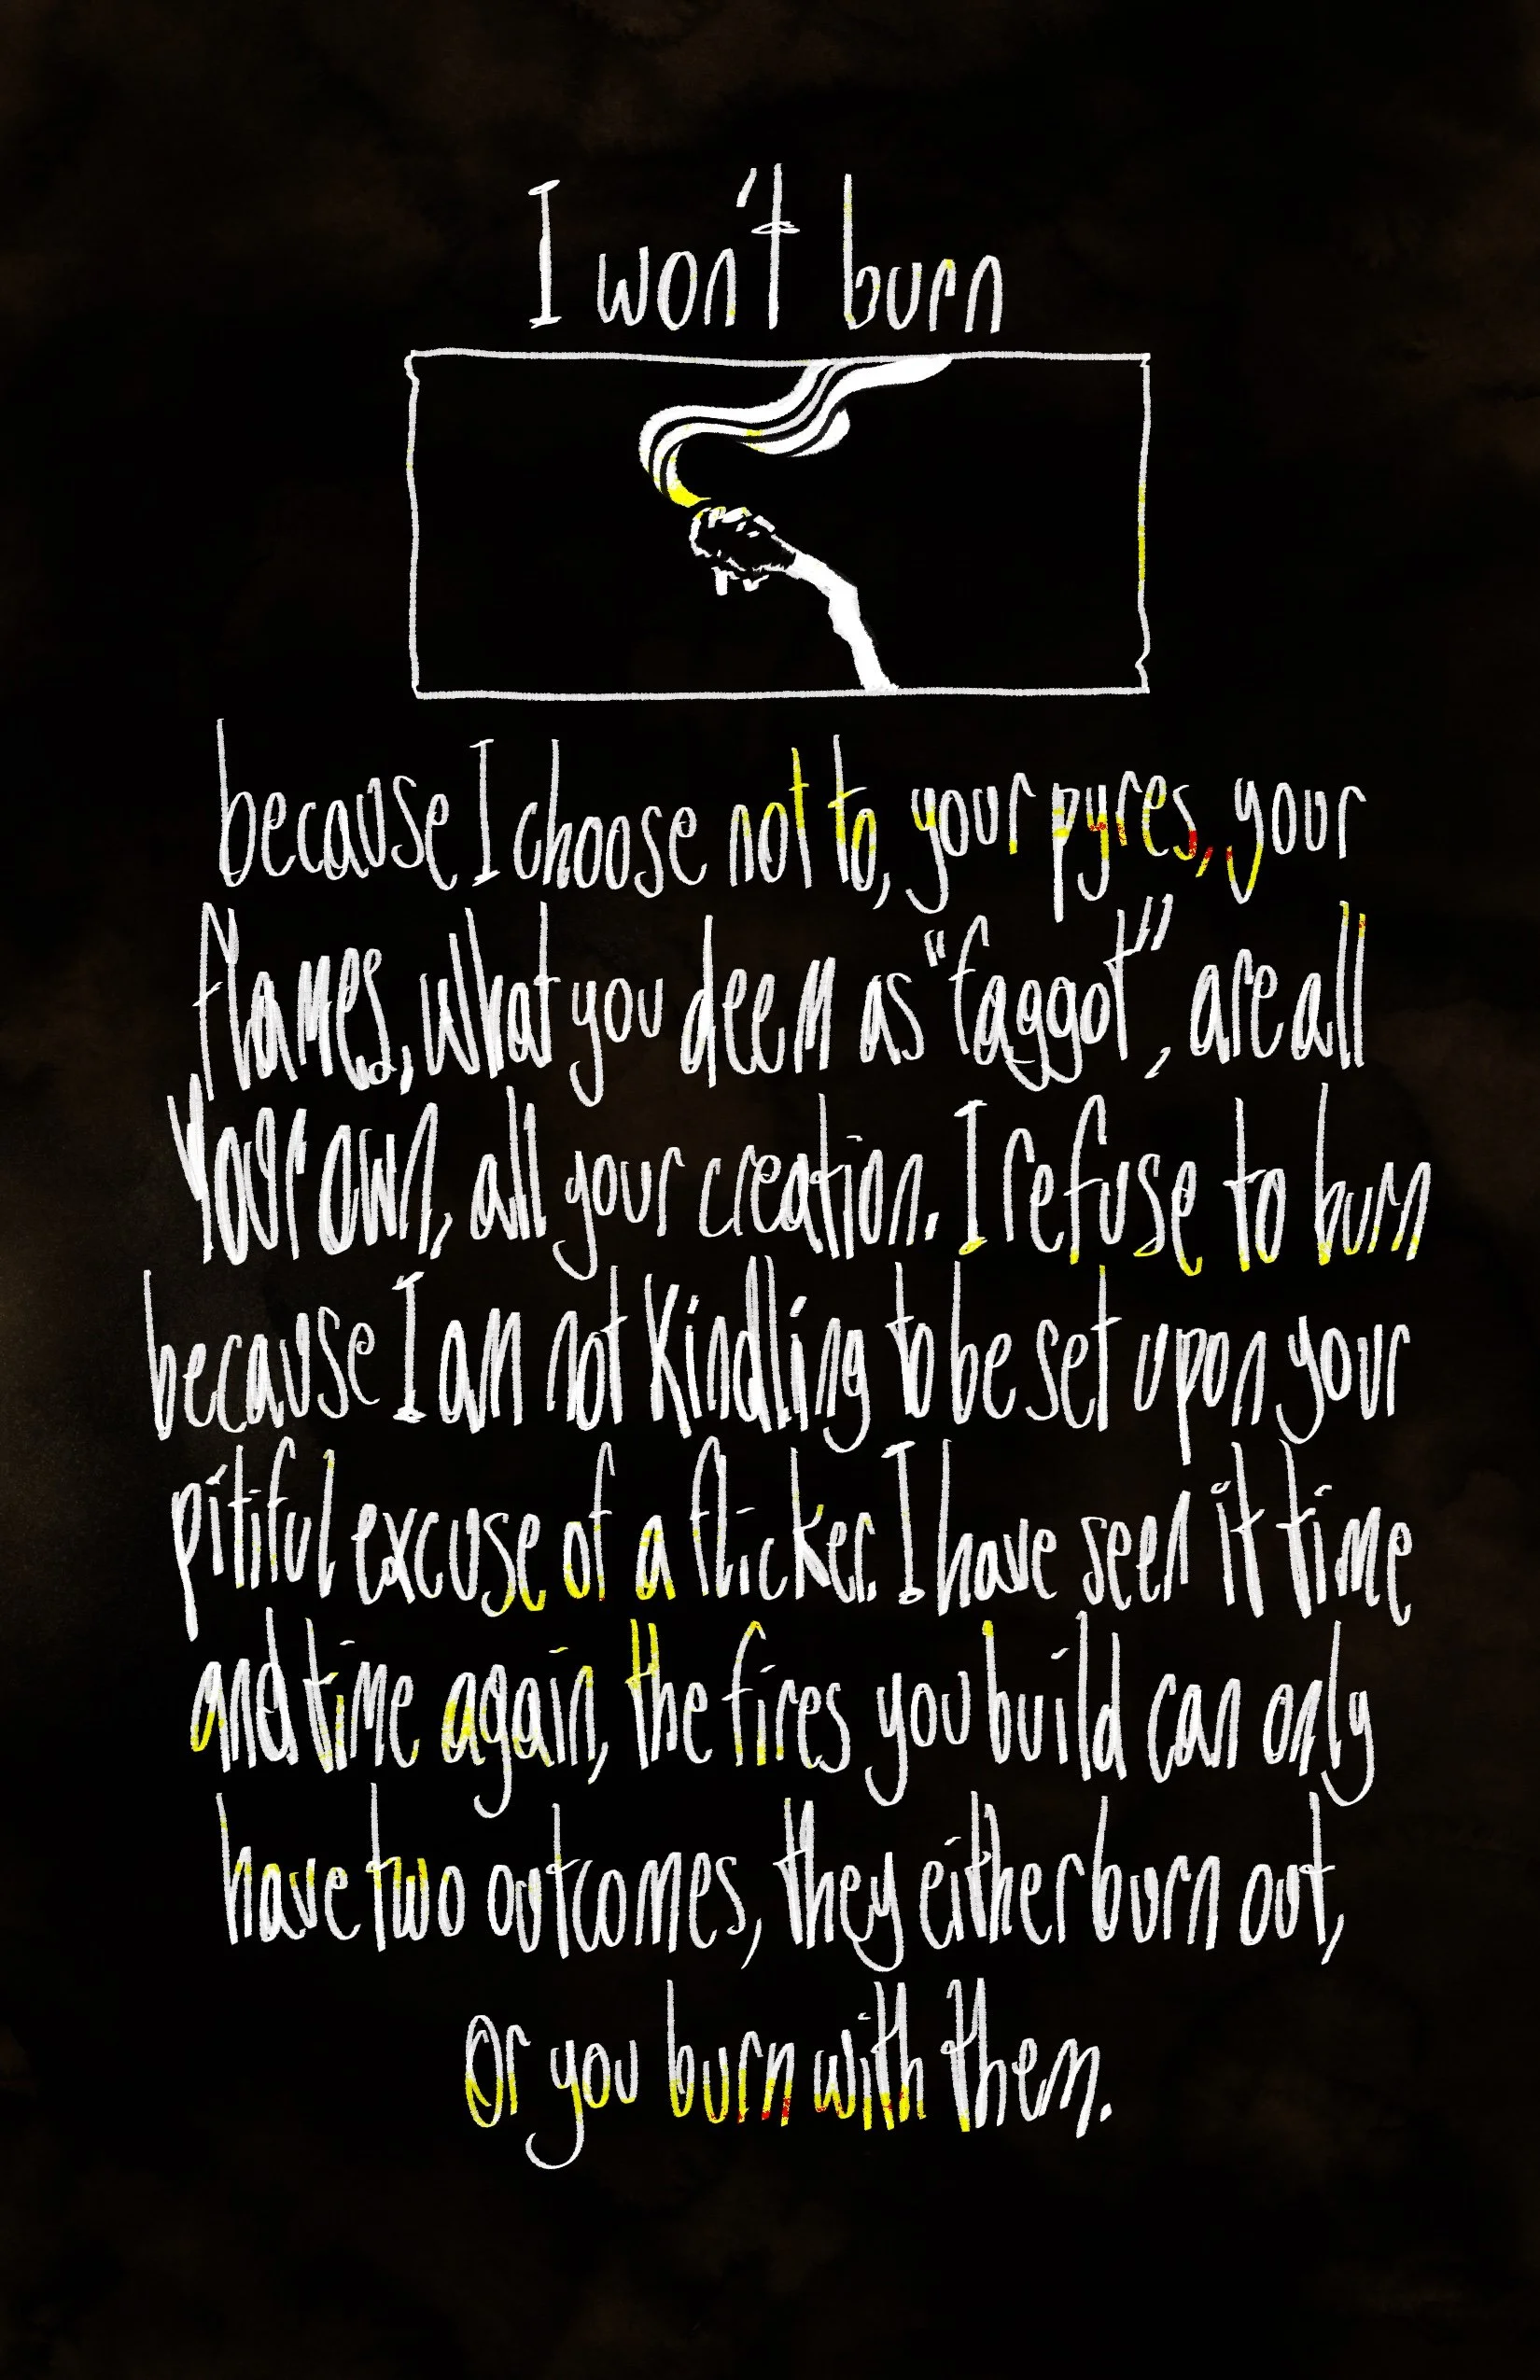 I won't burn
because I choose not to, your pyres, your
flames, what you deem as "faggot", are all
Your own, all your creation. I refuse to burn
because I am not kindling to be set upon your
pitiful excuse of a flicker. I have seen it time
and time again, the fires you build can only
have two outcomes, they either burn out,
Or you burn with them.